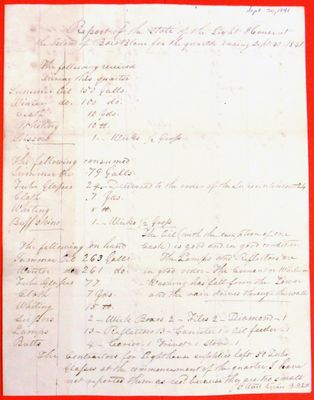 Sept. 30, 1841
Report of the State of the Light House at
the for the quarter ending Sept 30 1841
The following received
During this quarter
Summer Oil 150 Galls.
Winter do. 100 do.
Cloth 10 yds.
Whiting 10 lb.
Scissors 1 - Wicks ½ Gross
The following consumed
Summer Oil 79 Galls.
Tube Glasses 24 - Delivered to the order of the Superintendent 24
Cloth 7 yds.
Whiting 8 lb.
Buff Skins 1 - Wicks ½ Gross
The Oil (with the exception of one
The following on hand Cask) is good and in good condition
Summer Oil 263 Galls. The Lamps and Reflectors are
Winter do. 261 do. in good order. The Cement on
Tube Glasses 77 has fall from the Tower
Cloth 7 yds. and the rain drives through the walls
Whiting 15 lb.
2 - Wick Boxes 2 - Files 2 - Diamond - 1
Lamps 13 - Reflectors 13 - Canister 1 - Oil feeder - 1
Butts 4 - 1 Trivet 1 Stove 1
The Contractors for Light House supplies left 52 Tube
Glasses at the commencement of the quarter I have
not reported them as rec'd because they are too small